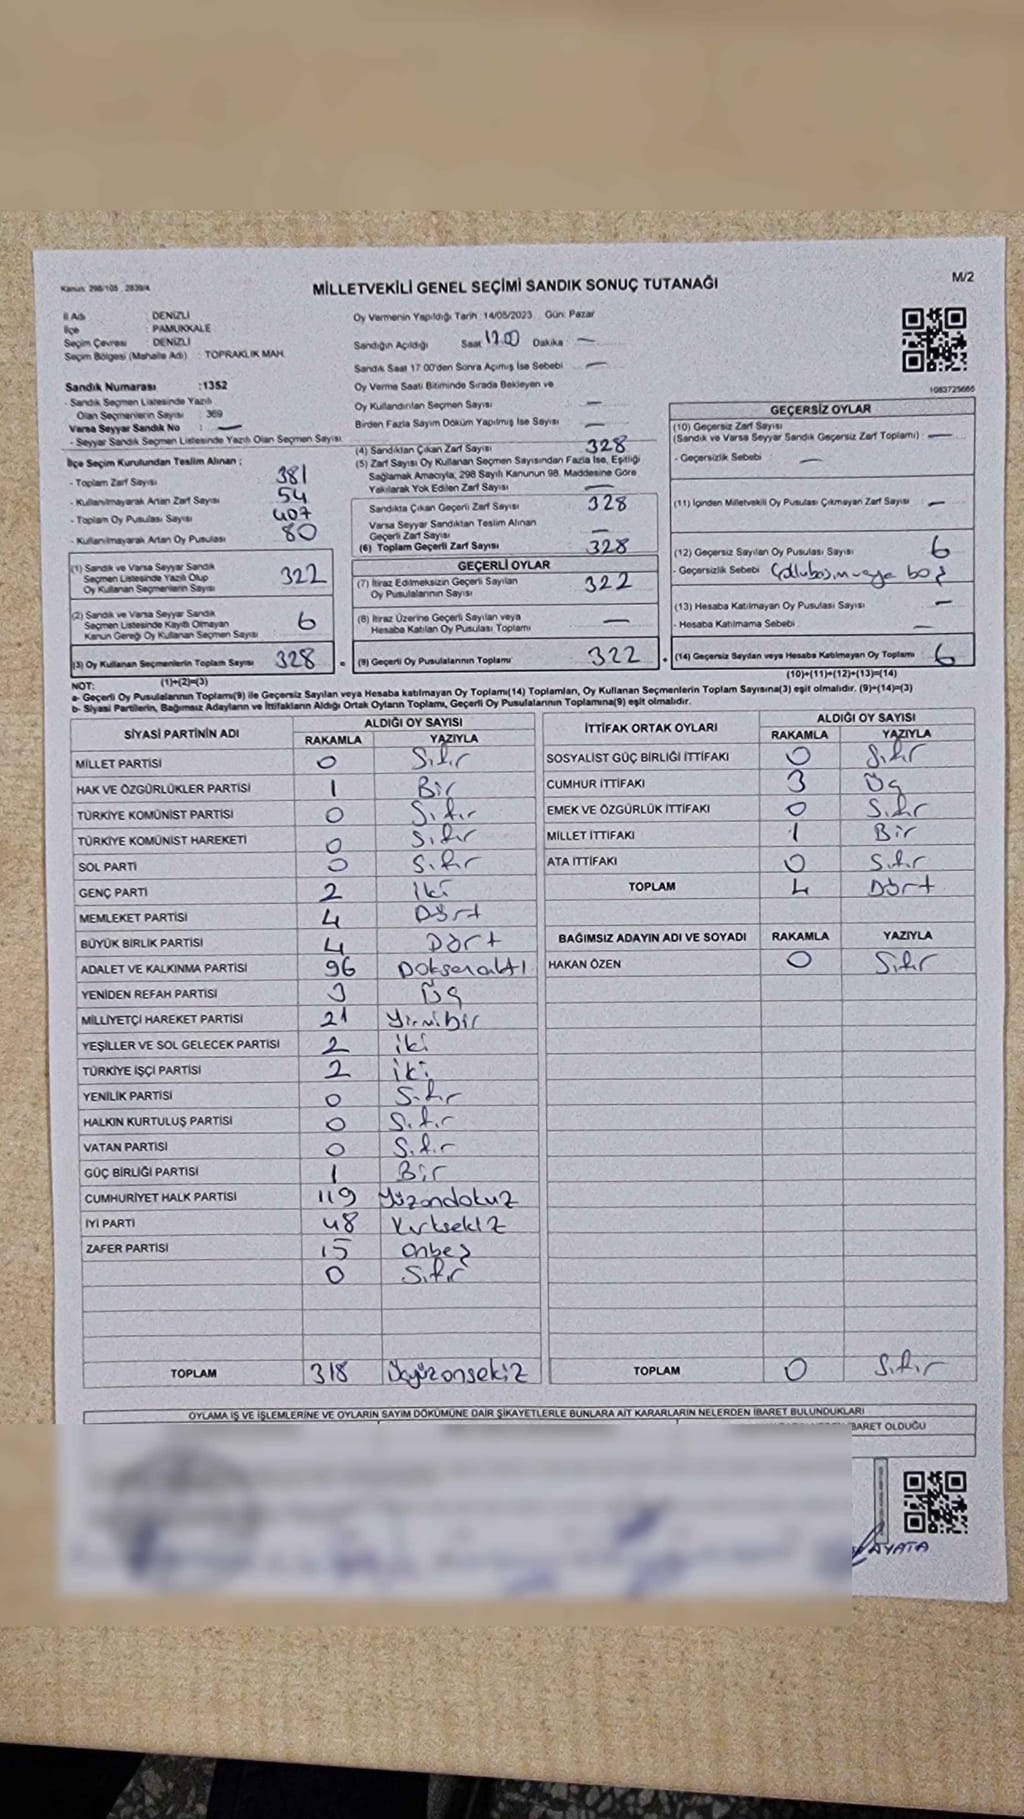 Kanun: 298/105 , 2839/4
MİLLETVEKİLİ GENEL SEÇİMİ SANDIK SONUÇ TUTANAĞI
M/2
İl Adı : DENİZLİ
İlçe : PAMUKKALE
Seçim Çevresi : DENİZLİ
Seçim Bölgesi (Mahalle Adı) : TOPRAKLIK MAH.
Sandık Numarası :1352
- Sandık Seçmen Listesinde Yazılı
Olan Seçmenlerin Sayısı : 369
Varsa Seyyar Sandık No : —
- Seyyar Sandık Seçmen Listesinde Yazılı Olan Seçmen Sayısı
İlçe Seçim Kurulundan Teslim Alınan :
- Toplam Zarf Sayısı 381
- Kullanılmayarak Artan Zarf Sayısı 54
- Toplam Oy Pusulası Sayısı 407
- Kullanılmayarak Artan Oy Pusulası 80
(1) Sandık ve Varsa Seyyar Sandık
Seçmen Listesinde Yazılı Olup
Oy Kullanan Seçmenlerin Sayısı 322
(2) Sandık ve Varsa Seyyar Sandık
Seçmen Listesinde Kayıtlı Olmayan
Kanun Gereği Oy Kullanan Seçmen Sayısı 6
(3) Oy Kullanan Seçmenlerin Toplam Sayısı 328
(1)+(2)=(3)
Oy Vermenin Yapıldığı Tarih :14/05/2023 Gün: Pazar
Sandığın Açıldığı Saat 17.00 Dakika —
Sandık Saat 17:00'den Sonra Açılmış İse Sebebi —
Oy Verme Saati Bitiminde Sırada Bekleyen ve
Oy Kullandırılan Seçmen Sayısı —
Birden Fazla Sayım Döküm Yapılmış İse Sayısı —
(4) Sandıktan Çıkan Zarf Sayısı 328
(5) Zarf Sayısı Oy Kullanan Seçmen Sayısından Fazla İse, Eşitliği
Sağlamak Amacıyla, 298 Sayılı Kanunun 98. Maddesine Göre
Yakılarak Yok Edilen Zarf Sayısı —
Sandıkta Çıkan Geçerli Zarf Sayısı 328
Varsa Seyyar Sandıktan Teslim Alınan
Geçerli Zarf Sayısı —
(6) Toplam Geçerli Zarf Sayısı 328
GEÇERLİ OYLAR
(7) İtiraz Edilmeksizin Geçerli Sayılan
Oy Pusulalarının Sayısı 322
(8) İtiraz Üzerine Geçerli Sayılan veya
Hesaba Katılan Oy Pusulası Toplamı —
= (9) Geçerli Oy Pusulalarının Toplamı 322
1083725665
GEÇERSİZ OYLAR
(10) Geçersiz Zarf Sayısı
(Sandık ve Varsa Seyyar Sandık Geçersiz Zarf Toplamı) —
- Geçersizlik Sebebi —
(11) İçinden Milletvekili Oy Pusulası Çıkmayan Zarf Sayısı —
(12) Geçersiz Sayılan Oy Pusulası Sayısı 6
- Geçersizlik Sebebi veya boş
(13) Hesaba Katılmayan Oy Pusulası Sayısı —
- Hesaba Katılmama Sebebi —
+ (14) Geçersiz Sayılan veya Hesaba Katılmayan Oy Toplamı 6
(10)+(11)+(12)+(13)=(14)
NOT:
a- Geçerli Oy Pusulalarının Toplamı(9) ile Geçersiz Sayılan veya Hesaba katılmayan Oy Toplamı(14) Toplamları, Oy Kullanan Seçmenlerin Toplam Sayısına(3) eşit olmalıdır. (9)+(14)=(3)
b- Siyasi Partilerin, Bağımsız Adayların ve İttifakların Aldığı Ortak Oyların Toplamı, Geçerli Oy Pusulalarının Toplamına(9) eşit olmalıdır.
SİYASİ PARTİNİN ADI ALDIĞI OY SAYISI
RAKAMLA YAZIYLA
MİLLET PARTİSİ 0 Sıfır
HAK VE ÖZGÜRLÜKLER PARTİSİ 1 Bir
TÜRKİYE KOMÜNİST PARTİSİ 0 Sıfır
TÜRKİYE KOMÜNİST HAREKETİ 0 Sıfır
SOL PARTİ 0 Sıfır
GENÇ PARTİ 2 İki
MEMLEKET PARTİSİ 4 Dört
BÜYÜK BİRLİK PARTİSİ 4 Dört
ADALET VE KALKINMA PARTİSİ 96 Doksanaltı
YENİDEN REFAH PARTİSİ 3 Üç
MİLLİYETÇİ HAREKET PARTİSİ 21 Yirmibir
YEŞİLLER VE SOL GELECEK PARTİSİ 2 iki
TÜRKİYE İŞÇİ PARTİSİ 2 iki
YENİLİK PARTİSİ 0 Sıfır
HALKIN KURTULUŞ PARTİSİ 0 Sıfır
VATAN PARTİSİ 0 Sıfır
GÜÇ BİRLİĞİ PARTİSİ 1 Bir
CUMHURİYET HALK PARTİSİ 119 Yüzondokuz
İYİ PARTİ 48 Kırksekiz
ZAFER PARTİSİ 15 Onbeş
0 Sıfır
TOPLAM 318 Üçyüzonsekiz
İTTİFAK ORTAK OYLARI ALDIĞI OY SAYISI
RAKAMLA YAZIYLA
SOSYALİST GÜÇ BİRLİĞİ İTTİFAKI 0 Sıfır
CUMHUR İTTİFAKI 3 Üç
EMEK VE ÖZGÜRLÜK İTTİFAKI 0 Sıfır
MİLLET İTTİFAKI 1 Bir
ATA İTTİFAKI 0 Sıfır
TOPLAM 4 Dört
BAĞIMSIZ ADAYIN ADI VE SOYADI RAKAMLA YAZIYLA
HAKAN ÖZEN 0 Sıfır
TOPLAM 0 Sıfır
OYLAMA İŞ VE İŞLEMLERİNE VE OYLARIN SAYIM DÖKÜMÜNE DAİR ŞİKAYETLERLE BUNLARA AİT KARARLARIN NELERDEN İBARET BULUNDUKLARI
İBARET OLDUĞU